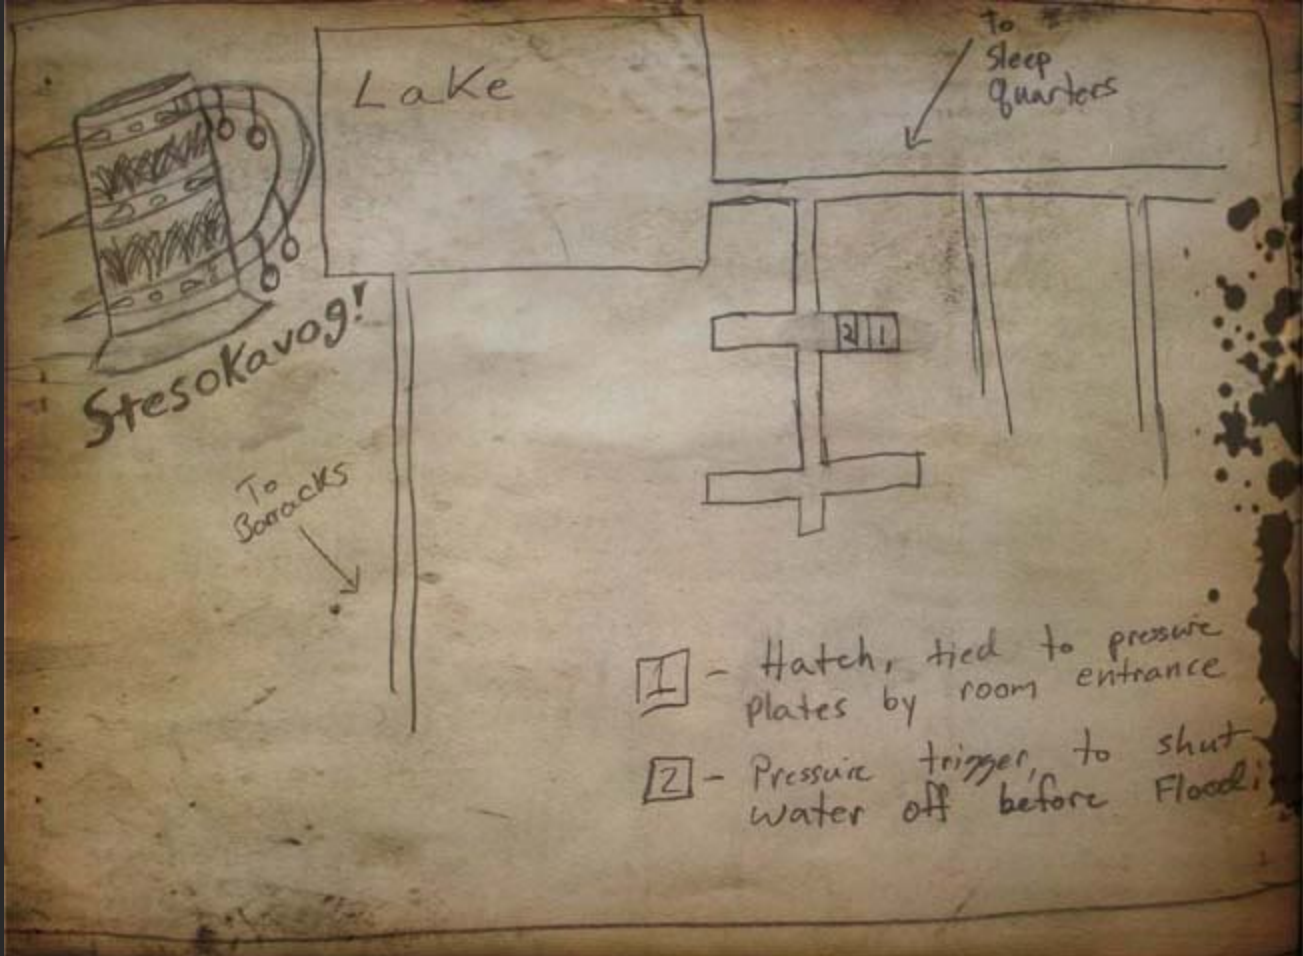 Lake
To
Sleep
quarters
2 1
Stesokavog!
To
Barracks
1 - Hatch, tied to pressure
plates by room entrance
2 - Pressure trigger, to shut
water off before Flood